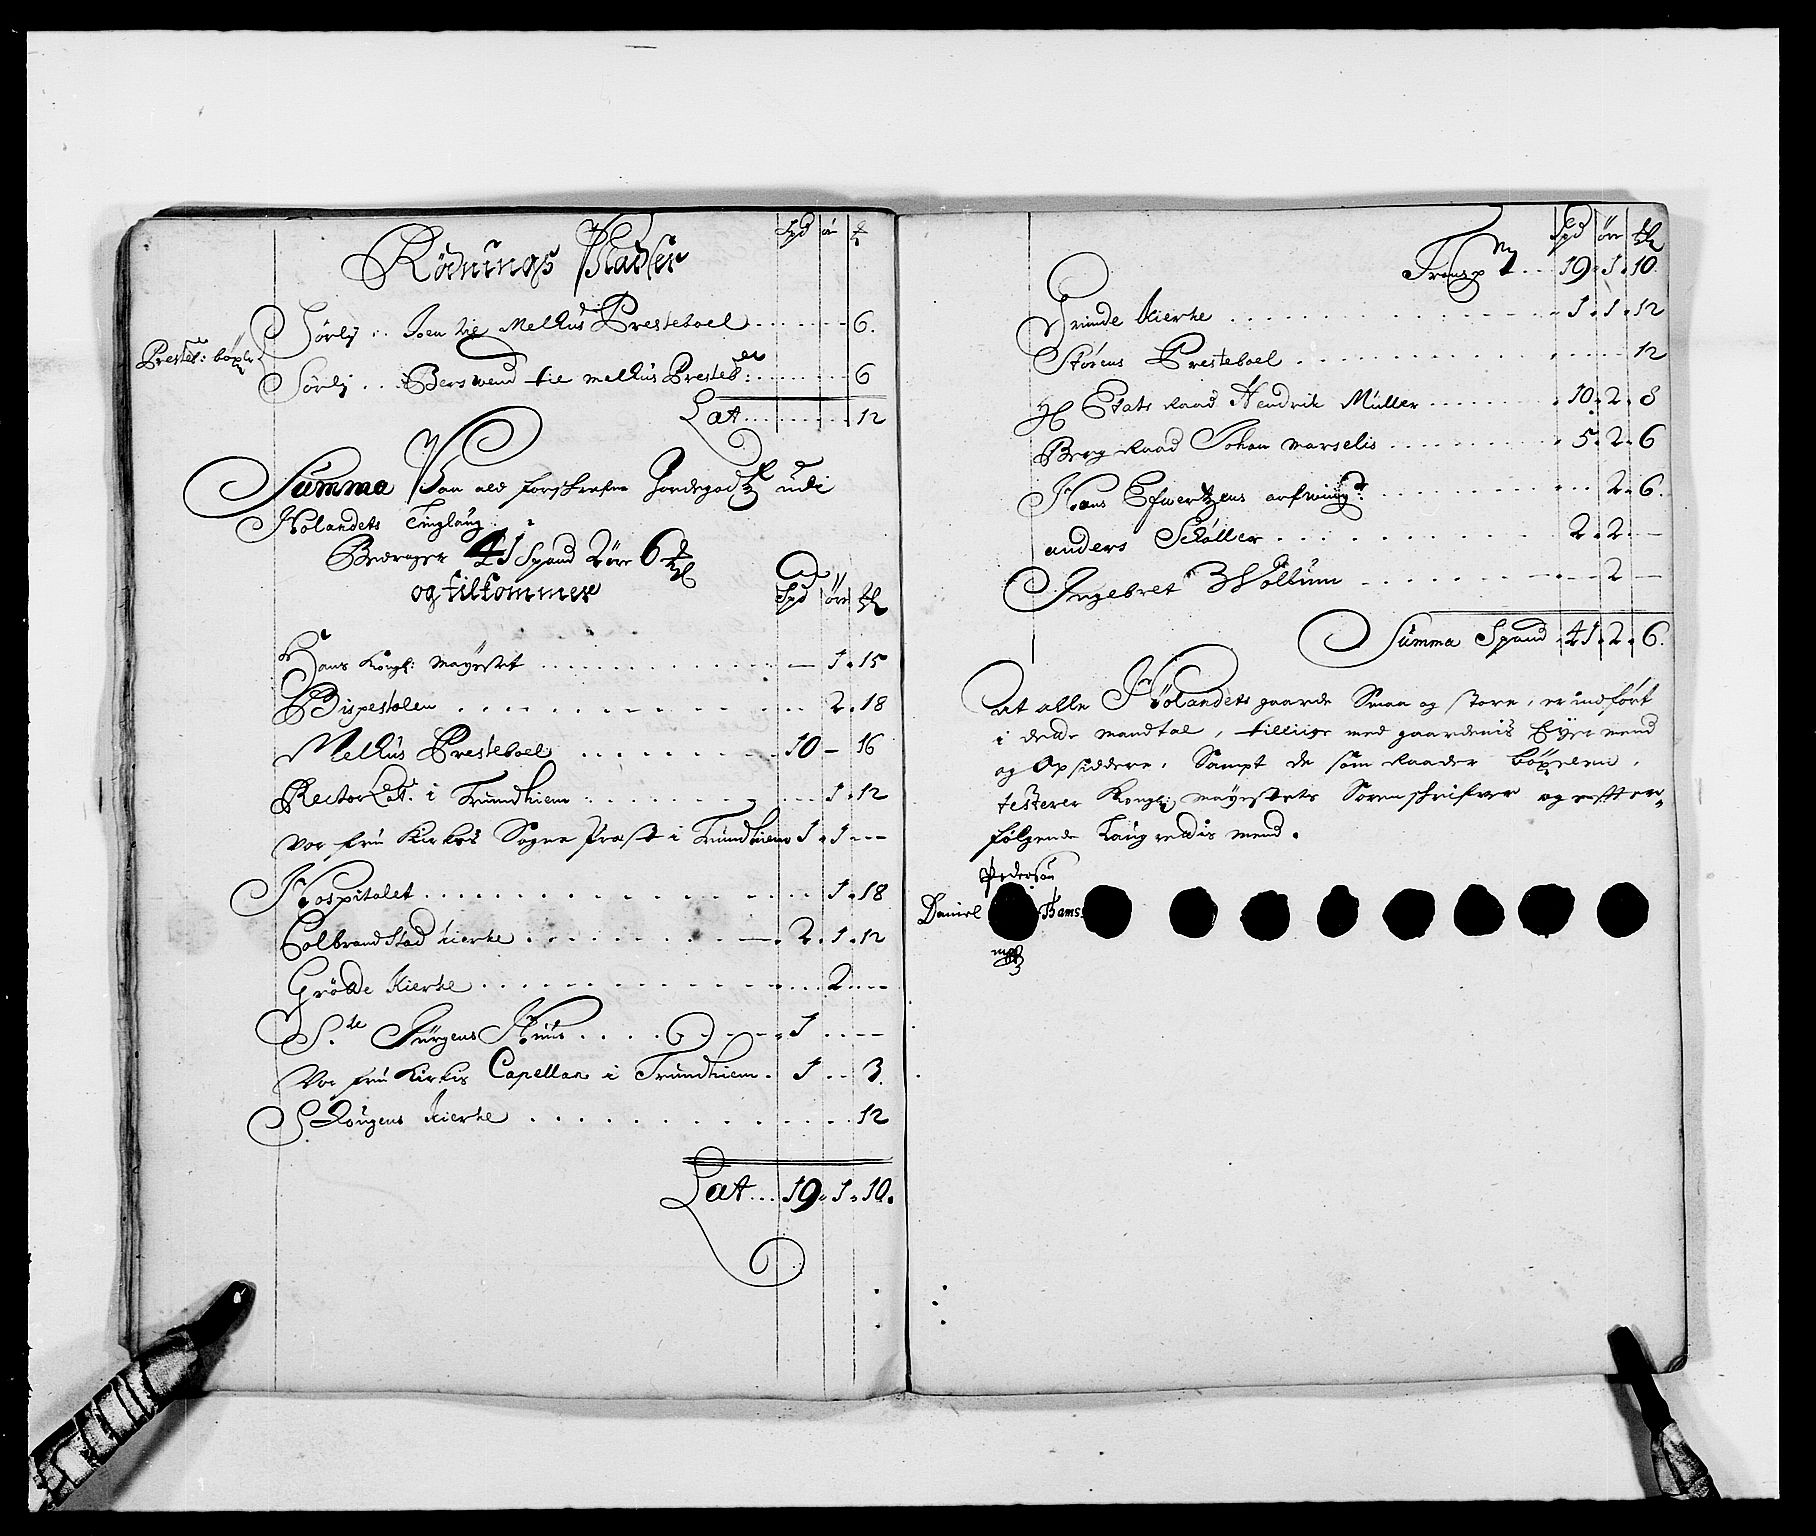 Rödnings Pladser
Spd ör
Sörlj .. Joen til Melhus Presteboel ....... 6.
Prestet: böxler
Sörlj ... Berswend til Melhus Presteb: ....... 6
Lat ....... 12
Summa Paa ald forskrefne Jordegodtz udi
Hølandets Tinglaug
Bedrager 41 Spand 2 öre 6
og tilkommer
Spd öre
Hans Kongl: Mayestet ....... — 1. 15
Bispestolen ....... 2. 18
Melhus Presteboel ....... 10 — 16
Rector Lat. i Trundhiem ....... 1. 12
Vor frue Kirkes Sogne Præst i Trundhiem 1. 1. --
Hospitalet ....... 1. 18
Colbrandstad Kierke ....... 2. 1. 12
Grötte Kierke ....... 2 ---
Ste Jürgens Huus ....... 1 ---
Vor frue Kirkis Capellan i Trundhiem. 1 .. 3.
Schougens Kierke ....... 12
Lat ... 19. 1. 10.
Spd öre
Transpt ... 19. 1. 10.
Grinde Kierke ....... 1. 1. 12
Störens Presteboel ....... 12
Hr Etats Raad Hendrik Müller ....... 10. 2. 8
Berg Raad Johan Marselis ....... 5. 2. 6
Hans Efwertzens arfwing: ....... 2. 6.
anders Schöller ....... 2. 2. —
Ingebret ....... 2 —
Summa Spand 41. 2. 6.
At alle Hölandets gaarde Smaa og store, er indfört
i dette mandtal, tilliige med gaardenis Eyermend
og Opsiddere, Sampt de som Raader böxelen,
testerer Kongl: mayestets Sorenskrifver og efter-
følgende Laugrettis mend.
Pedersön
Daniel Thams:
mpp